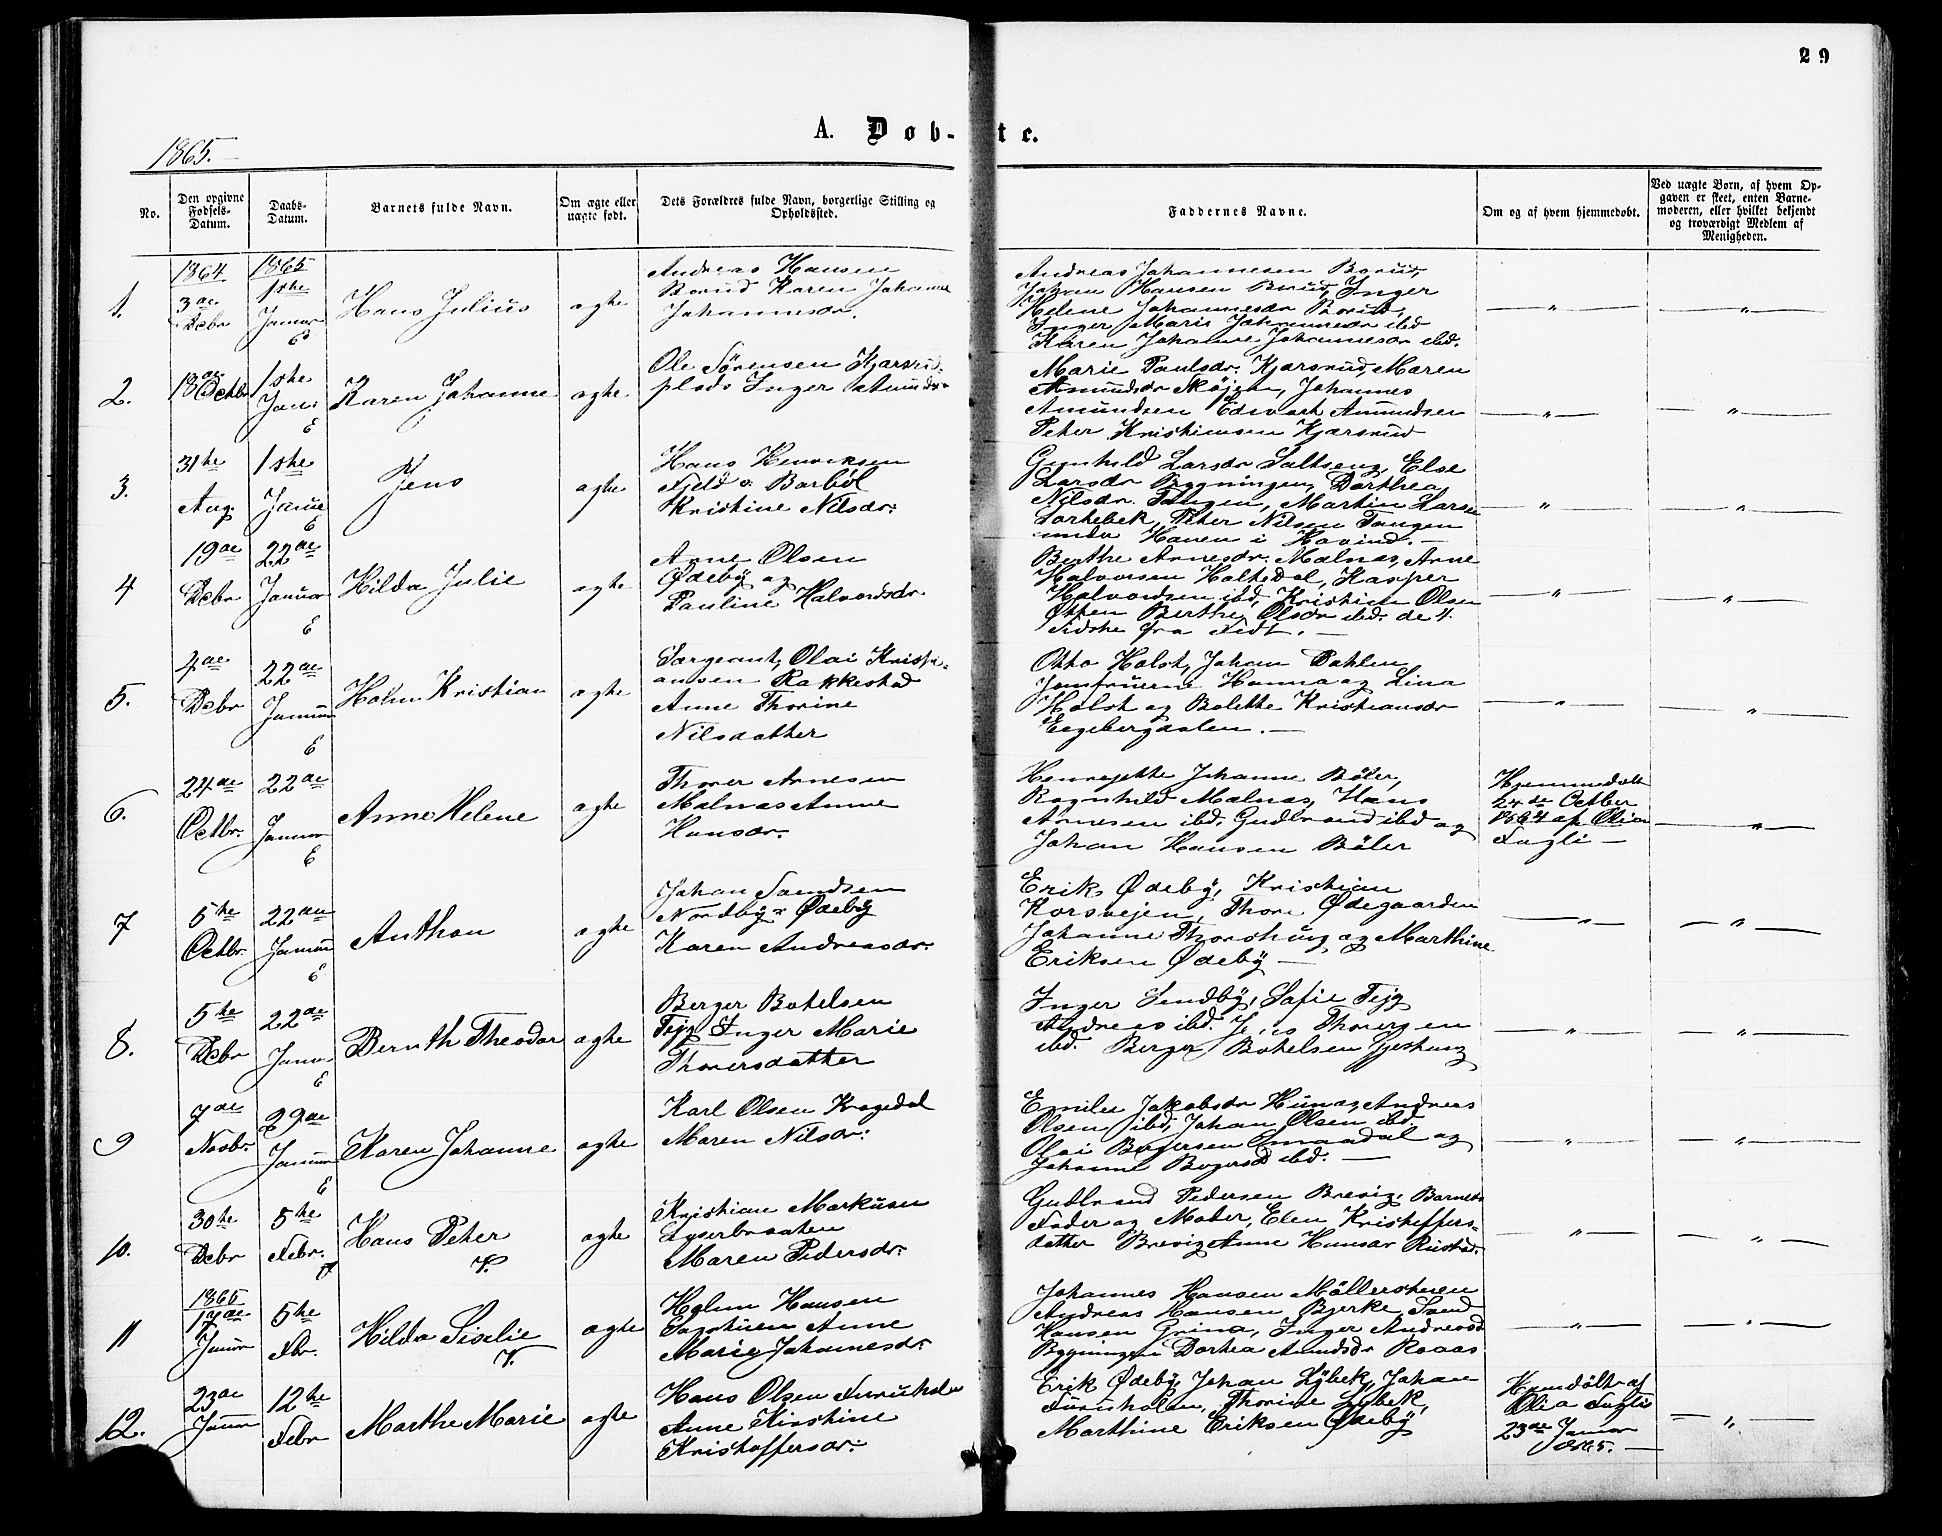 29
1865.
A. Døb-te.
No.
Den opgivne Fødsels-Datum.
Daabs-Datum.
Barnets fulde Navn.
Om ægte eller uægte født.
Dets Forældres fulde Navn, borgerlige Stilling og Opholdssted.
Faddernes Navne.
Om og af hvem hjemmedøbt.
Ved uægte Børn, af hvem Opgaven er skeet, enten Barnemoderen, eller hvilket bekjendt og troværdigt Medlem af Menigheden.
1.
1864
3de Debr
1865
1ste Januar
Hans Julius
ægte
Andreas Hansen
Borud Karen Johanne
Johannesdr.
Andreas Johannesen Borud,
Johan Hansen Borud, Inger
Helene Johannesdr Borud,
Inger Marie Johannesdr ibd
Karen Johanne Johannesdr ibd.
2.
18de Octbr
1ste Jan.
Karen Johanne
ægte
Ole Sörensen Kjærsrud
plads Inger Amundsdr
Marie Paulsdr. Kjærsrud, Maren
Amundsdr Skøjen, Johannes
Amundsen Edvart Amundsen
Peter Kristiansen Kjærsrud
3.
31te Aug
1ste Janua
Jens
ægte
Hans Henriksen
Barböl
Kristine Nilsdr.
Gunhild Larsdr Else
Larsdr Bygningen, Dorthea
Nilsdr. Tangen, Martin Larsen
Peter Nilsen Tangen
i Hovind.
4
19de Debr
22de Januar
Hilda Julie
ægte
Arne Olsen
Ødeby og
Pauline Halvordsdr
Berthe Arnesdr. Malnas, Arne
Halvorsen Holtedal, Kasper
Halvordsen ibd, Kristian Olsen
Berthe Olsdr ibd. de 4
Sidste fra
5.
4de Debr
22de Januar
Holm Kristian
ægte
Sargeant, Olai Kristi-
ansen Rakkestad
Anne Thorine
Nilsdatter
Otto Holst, Johan Dahlen
Jomfruerne Hanna og Lina
Holst og Bolette Kristiansdr
Eegebergdalen.
6.
24de Octbr.
22de Januar
Anne Helene
ægte
Thorer Arnesen
Malnas Anne
Hansdr.
Johanne Böler,
Ragnhild Malnas, Hans
Arnesen ibd. Gudbrand ibd og
Johan Hansen Böler
Hjemmedöbt
24de Octber
1864 af Olia
Fagli
7
5te Octbr
22de Januar
Anthon
ægte
Johan
Nordby Ødeby
Karen Andreasdr.
Erik Ødeby, Kristian
Korsvejen, Thore Ødegaarden
Johanne og Marthine
Eriksen Ødeby
8.
5te Debr
22de Janu.
Bernth Theodor
ægte
Berger Botelsen
Inger Marie
Thorersdatter
Inger Sundby, Safie
Andreas ibd.
ibd. Berger Botelsen
9
7de Novbr.
29de Januar
Karen Johanne
ægte
Karl Olsen Kragedal
Maren Nilsdr.
Emilie Jakobsdr Andreas
Olsen ibd, Johan Olsen ibd.
Olai Smaadal og
Johanne ibd.
10.
30te Debr
5te Febr.
Hans Peter
V.
ægte
Kristian Markusen
Lyserbraaten
Maren Pedersdr.
Gudbrand Pedersen Brevig, Barnets
Fader og Moder, Elen Kristoffers-
datter Brevig Anne Hansdr Rustad.
11
1865
Januar
5te Fbr.
Hilda Siselie
V.
ægte
Holm Hansen
Anne
Marie Johanesdr.
Johannes Hansen Möllerstuen
Andreas Hansen Bjerke
Hansen Grina, Inger Andreasd
Bygningen Dorthea Amundsdr Raaas
12.
23de Januar
12te Febr
Marthe Marie
ægte
Hans Olsen Furuholen
Anne Kirstine
Kristoffersdr.
Erik Ødeby, Johan Lybek, Johan
Furuholen, Thorine Lybek,
Marthine Eriksen Ødeby
af
Olia Fagli
23de Januar
1865.